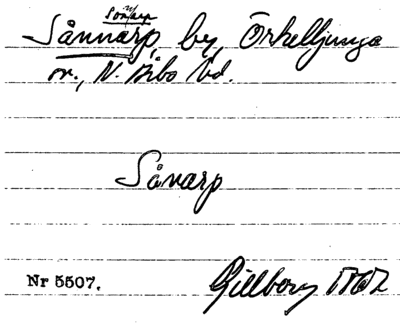 Sonnarp
Sånnarp, by, Örkelljunga
sn., N. Åsbo hd.
Sånarp
Nr 5507.
Gillberg 1767